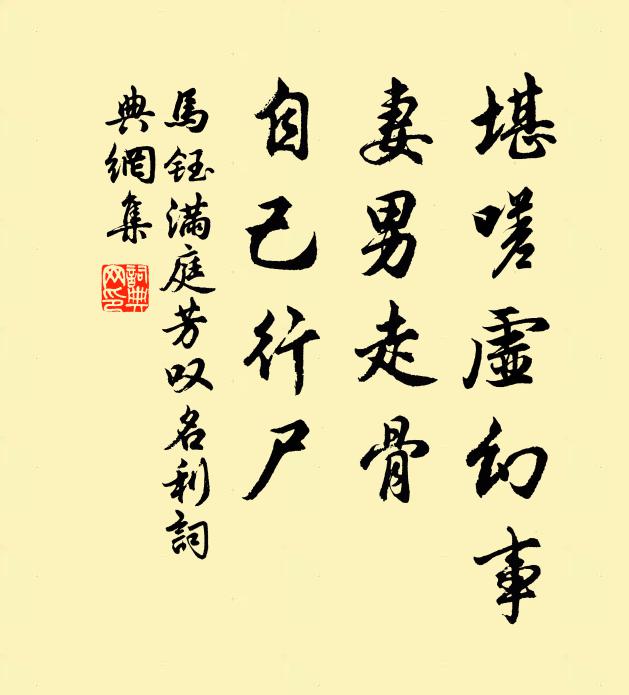 堪嗟虛幻事
妻男走骨
自己行尸
馬鈺滿庭芳叹名利詞
典網集
詞典
网印